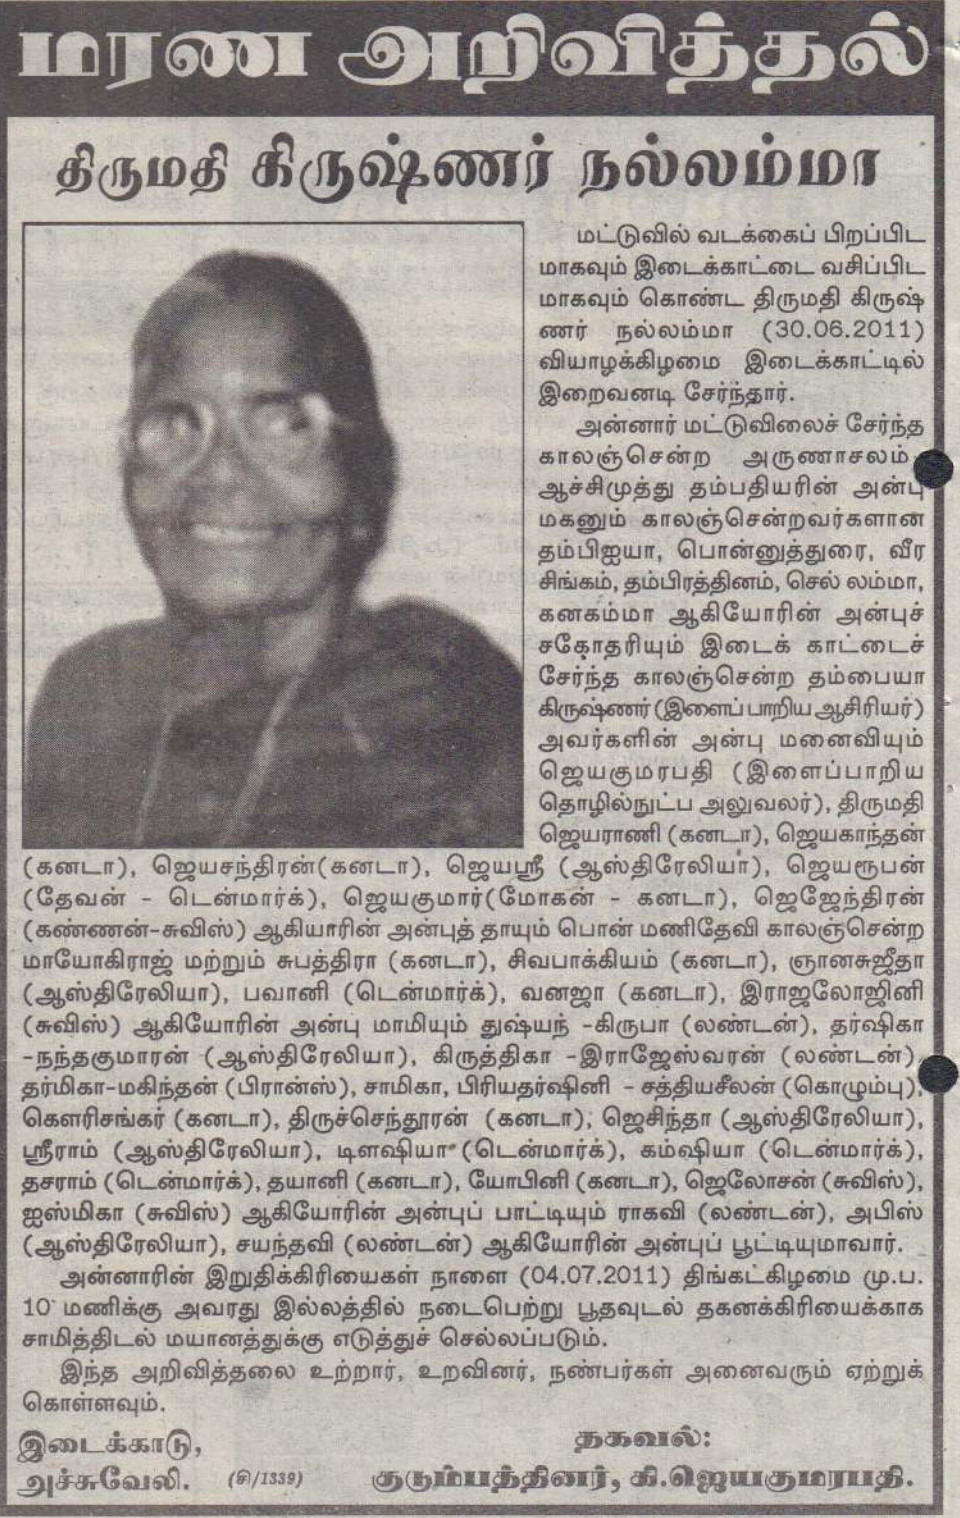 மரண அறிவித்தல்
திருமதி கிருஷ்ணர் நல்லம்மா
மட்டுவில் வடக்கைப் பிறப்பிட
மாகவும் இடைக்காட்டை வசிப்பிட
மாகவும் கொண்ட திருமதி கிருஷ்
ணர் நல்லம்மா (30.06.2011)
வியாழக்கிழமை இடைக்காட்டில்
இறைவனடி சேர்ந்தார்.
அன்னார் மட்டுவிலைச் சேர்ந்த
காலஞ்சென்ற அருணாசலம் -
ஆச்சிமுத்து தம்பதியரின் அன்பு
மகளும் காலஞ்சென்றவர்களான
தம்பிஐயா, பொன்னுத்துரை, வீர
சிங்கம், தம்பிரத்தினம், செல் லம்மா,
கனகம்மா ஆகியோரின் அன்புச்
சகோதரியும் இடைக் காட்டைச்
சேர்ந்த காலஞ்சென்ற தம்பையா
கிருஷ்ணர் (இளைப்பாறிய ஆசிரியர்)
அவர்களின் அன்பு மனைவியும்
ஜெயகுமரபதி (இளைப்பாறிய
தொழில்நுட்ப அலுவலர்), திருமதி
ஜெயராணி (கனடா), ஜெயகாந்தன்
(கனடா), ஜெயசந்திரன்(கனடா), ஜெயஸ்ரீ (ஆஸ்திரேலியா), ஜெயரூபன்
(தேவன் - டென்மார்க்), ஜெயகுமார்(மோகன் - கனடா), ஜெஜேந்திரன்
(கண்ணன்-சுவிஸ்) ஆகியாரின் அன்புத் தாயும் பொன் மணிதேவி காலஞ்சென்ற
மாயோகிராஜ் மற்றும் சுபத்திரா (கனடா), சிவபாக்கியம் (கனடா), ஞானசுஜீதா
(ஆஸ்திரேலியா), பவானி (டென்மார்க்), வனஜா (கனடா), இராஜலோஜினி
(சுவிஸ்) ஆகியோரின் அன்பு மாமியும் துஷ்யந் -கிருபா (லண்டன்), தர்ஷிகா
-நந்தகுமாரன் (ஆஸ்திரேலியா), கிருத்திகா -இராஜேஸ்வரன் (லண்டன்),
தர்மிகா-மகிந்தன் (பிரான்ஸ்), சாமிகா, பிரியதர்ஷினி - சத்தியசீலன் (கொழும்பு),
கௌரிசங்கர் (கனடா), திருச்செந்தூரன் (கனடா), ஜெசிந்தா (ஆஸ்திரேலியா),
ஸ்ரீராம் (ஆஸ்திரேலியா), டிளஷியா (டென்மார்க்), கம்ஷியா (டென்மார்க்),
தசராம் (டென்மார்க்), தயானி (கனடா), யோபினி (கனடா), ஜெலோசன் (சுவிஸ்),
ஐஸ்மிகா (சுவிஸ்) ஆகியோரின் அன்புப் பாட்டியும் ராகவி (லண்டன்), அபிஸ்
(ஆஸ்திரேலியா), சயந்தவி (லண்டன்) ஆகியோரின் அன்புப் பூட்டியுமாவார்.
அன்னாரின் இறுதிக்கிரியைகள் நாளை (04.07.2011) திங்கட்கிழமை மு.ப.
10 மணிக்கு அவரது இல்லத்தில் நடைபெற்று பூதவுடல் தகனக்கிரியைக்காக
சாமித்திடல் மயானத்துக்கு எடுத்துச் செல்லப்படும்.
இந்த அறிவித்தலை உற்றார், உறவினர், நண்பர்கள் அனைவரும் ஏற்றுக்
கொள்ளவும்.
இடைக்காடு,
அச்சுவேலி.
(சி/1339)
தகவல்:
குடும்பத்தினர், கி.ஜெயகுமரபதி.